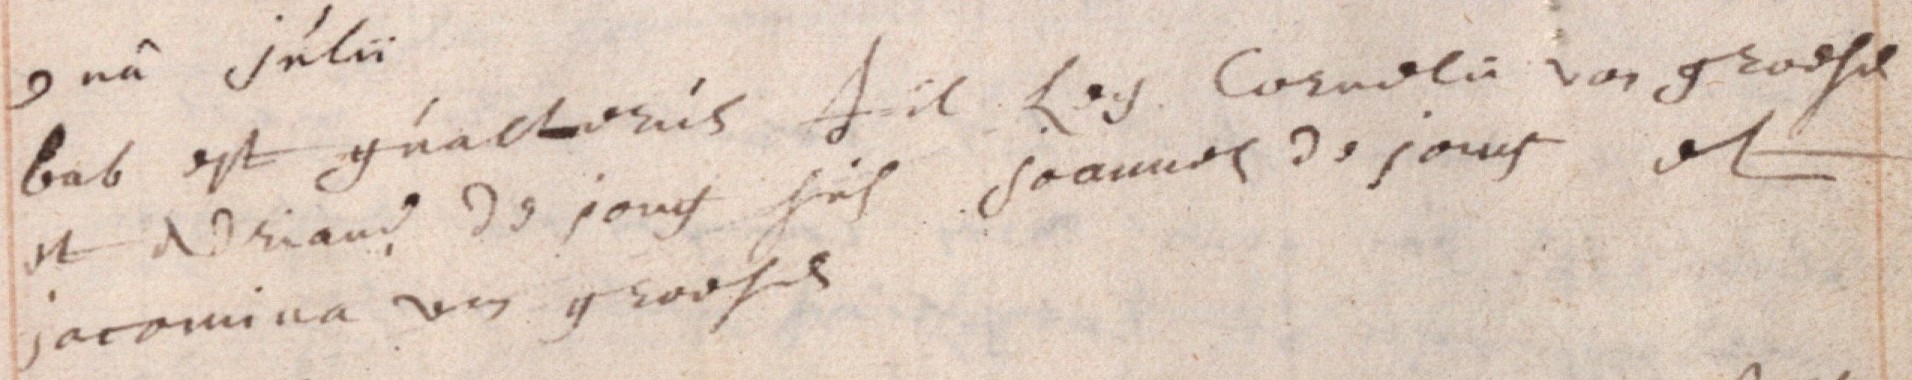 9nâ júlii
bab est gúalterús fil leg. Cornelii van groesel
et Adriana de jong sús joannes de jong et
jacomina van groesel